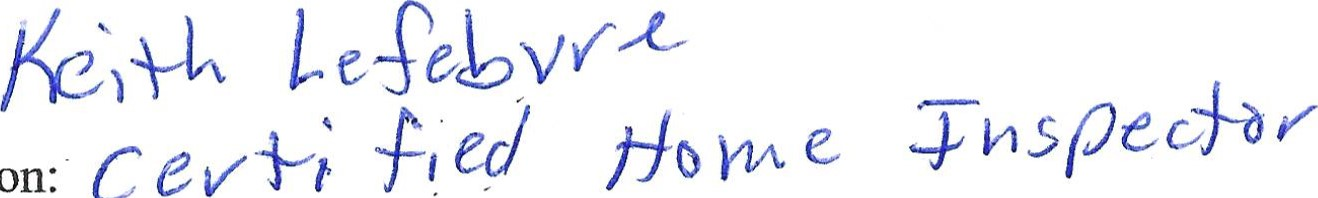 Keith Lefebvre
on: Certified Home Inspector